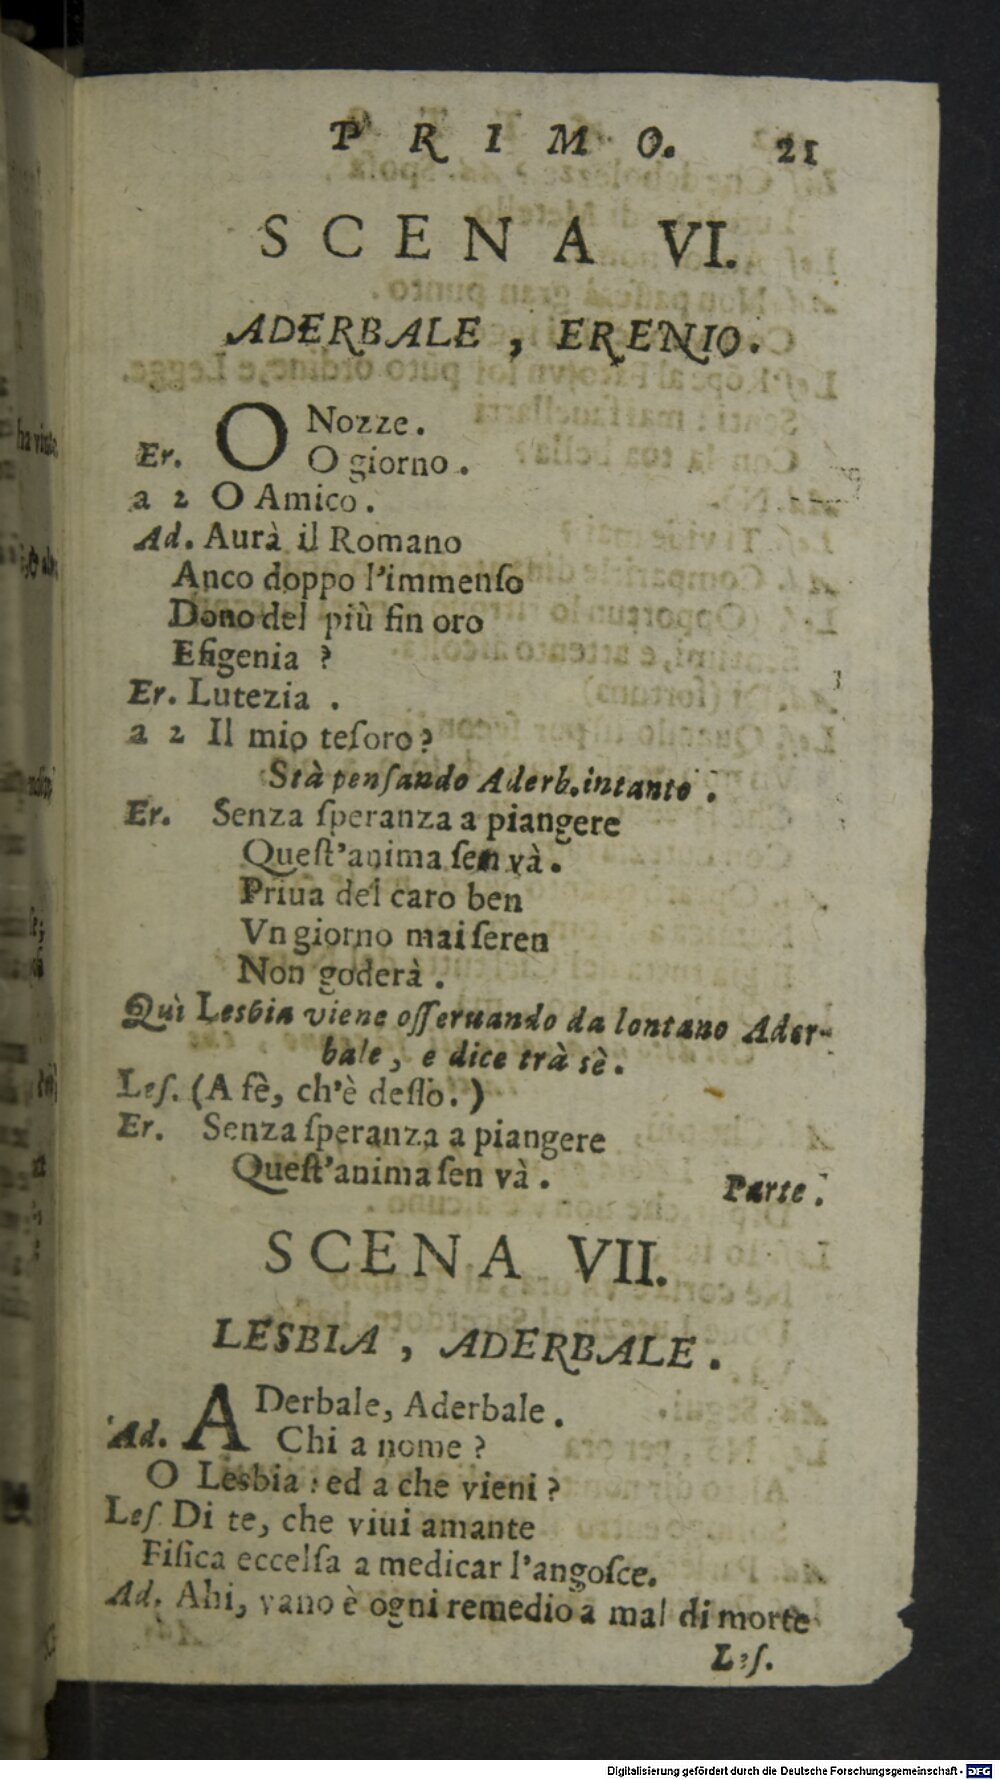 PRIMO. 21
SCENA VI.
ADERBALE, ERENIO.
O Nozze.
Er. O giorno.
a 2 O Amico.
Ad. Aurà il Romano
Anco doppo l'immenſo
Dono del più fin oro
Efigenia ?
Er. Lutezia .
a 2 Il mio teſoro?
Stà penſando Aderb. intanto .
Er. Senza ſperanza a piangere
Queſt'anima ſen và.
Priua del caro ben
Vn giorno mai ſeren
Non goderà .
Quì Lesbia viene oſſeruando da lontano Ader-
bale, e dice trà sè.
Leſ. (A fê, ch'è deſſo.)
Er. Senza ſperanza a piangere
Queſt'anima ſen và .
Parte.
SCENA VII.
LESBIA, ADERBALE.
ADerbale, Aderbale.
Ad. Chi a nome ?
O Lesbia : ed a che vieni ?
Leſ Di te, che viui amante
Fiſica eccelſa a medicar l'angoſce.
Ad. Ahi, vano è ogni remedio a mal di morte
Leſ.
Digitalisierung gefördert durch die Deutsche Forschungsgemeinschaft - DFG